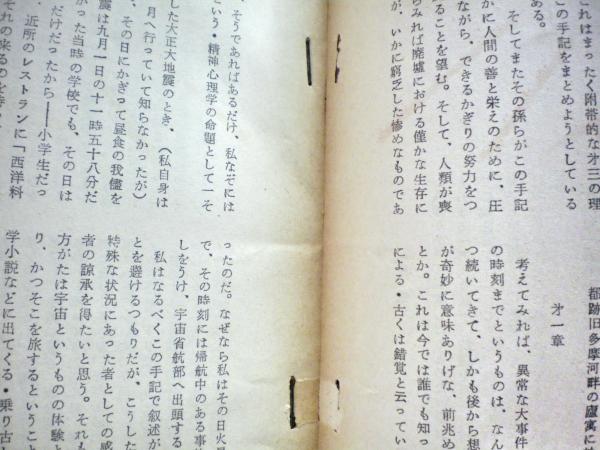 これはまったく附帯的な才三の理
この手記をまとめようとしている
ある。
そしてまたその孫らがこの手記
かに人間の善と栄えのために、圧
ながら、できるかぎりの努力をつ
ることを望む。そして、人類が喪
らみれば廃墟における僅かな生存に
が、いかに窮乏した惨めなものであ
都跡旧多摩河畔の廬寓に
才一章
考えてみれば、異常な大事件
の時刻までというものは、なん
つ続いてきて、しかも後から想
が奇妙に意味ありげな、前兆め
とか。これは今では誰でも知っ
による・古くは錯覚と云ってい
そうであればあるだけ、私なぞには
という・精神心理学の命題として一そ
した大正大地震のとき、(私自身は
月へ行っていて知らなかったが)
、その日にかぎって昼食の我儘を
震は九月一日の十一時五十八分だ
かった当時の学校でも、その日は
だけだったから――小学生だっ
近所のレストランに「西洋料
それの来るのを
ったのだ。なぜなら私はその日火
で、その時刻には帰航中のある事
しをうけ、宇宙省航部へ出頭する
私はなるべくこの手記で叙述が
とを避けるつもりだが、こうした
特殊な状況にあった者としての感
者の諒承を得たいと思う。それも
方がたは宇宙というものの体験と
り、かつそこを旅するということ
学小説などに出てくる・乗り古